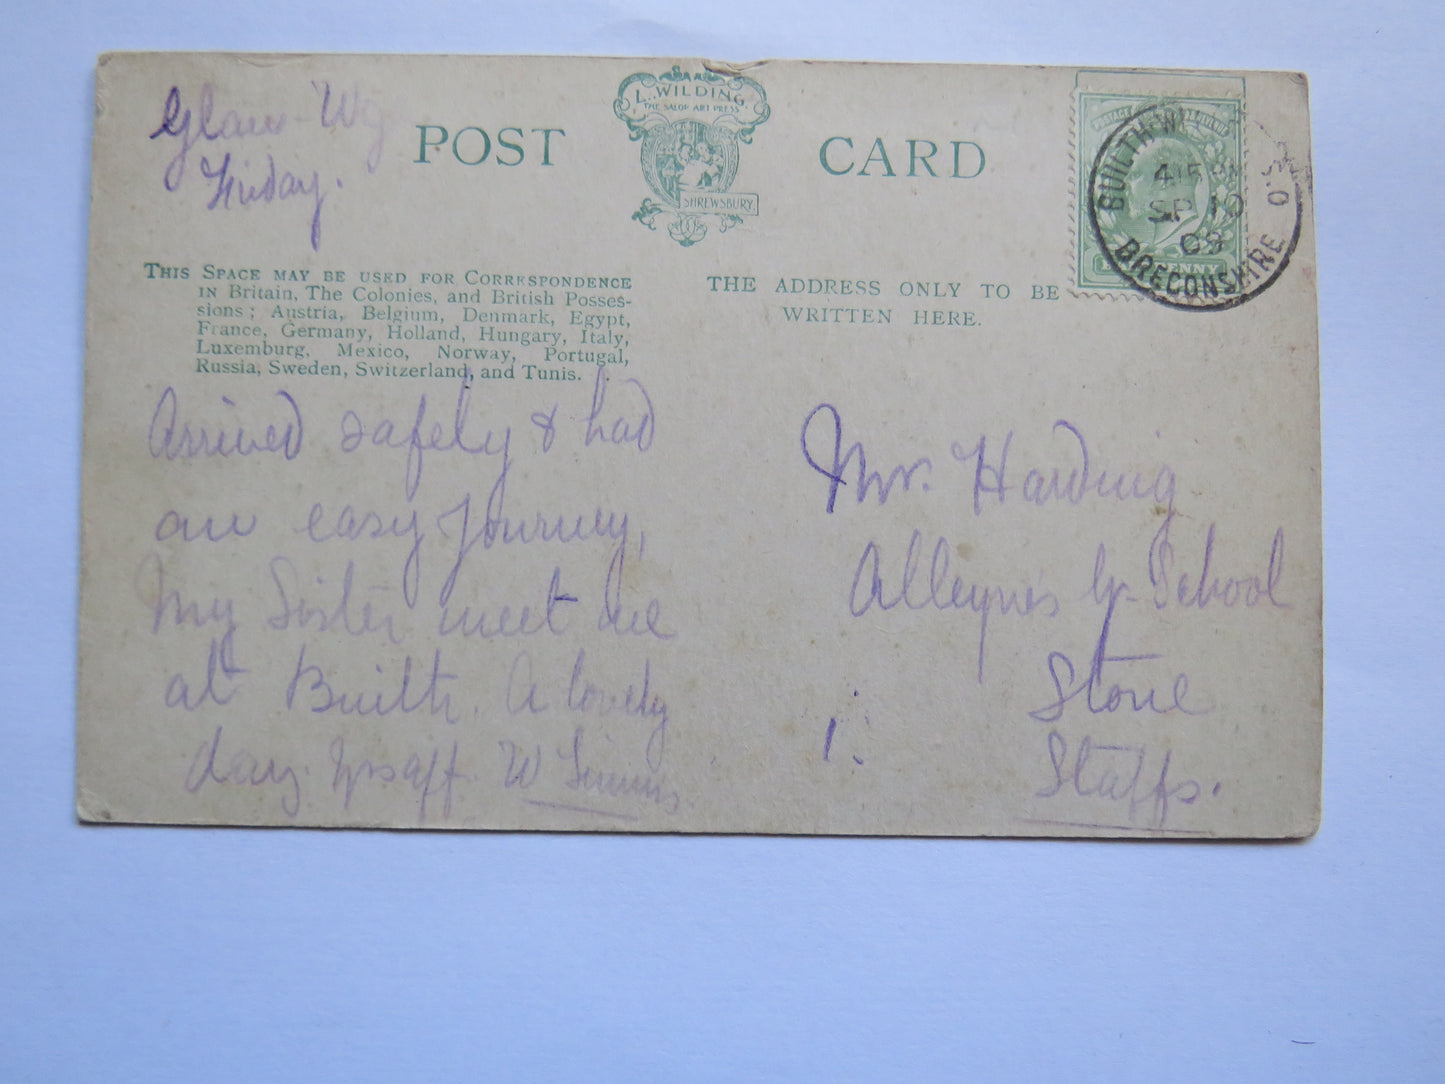 Glan-Wy
Friday.
POST CARD
L. WILDING.
THE SALOP ART PRESS.
SHREWSBURY.
BUILTH W
4 15 PM
SP 10
09
BRECONSHIRE
S.O
THIS SPACE MAY BE USED FOR CORRESPONDENCE
IN Britain, The Colonies, and British Posses-
sions; Austria, Belgium, Denmark, Egypt,
France, Germany, Holland, Hungary, Italy,
Luxemburg, Mexico, Norway, Portugal,
Russia, Sweden, Switzerland, and Tunis.
THE ADDRESS ONLY TO BE
WRITTEN HERE.
Arrived safely & had
an easy journey,
My Sister meet me
at Builth. A lovely
day. Yrs aff. W
Mr. Harding
Alleyne's Gr. School
Stone
Staffs.